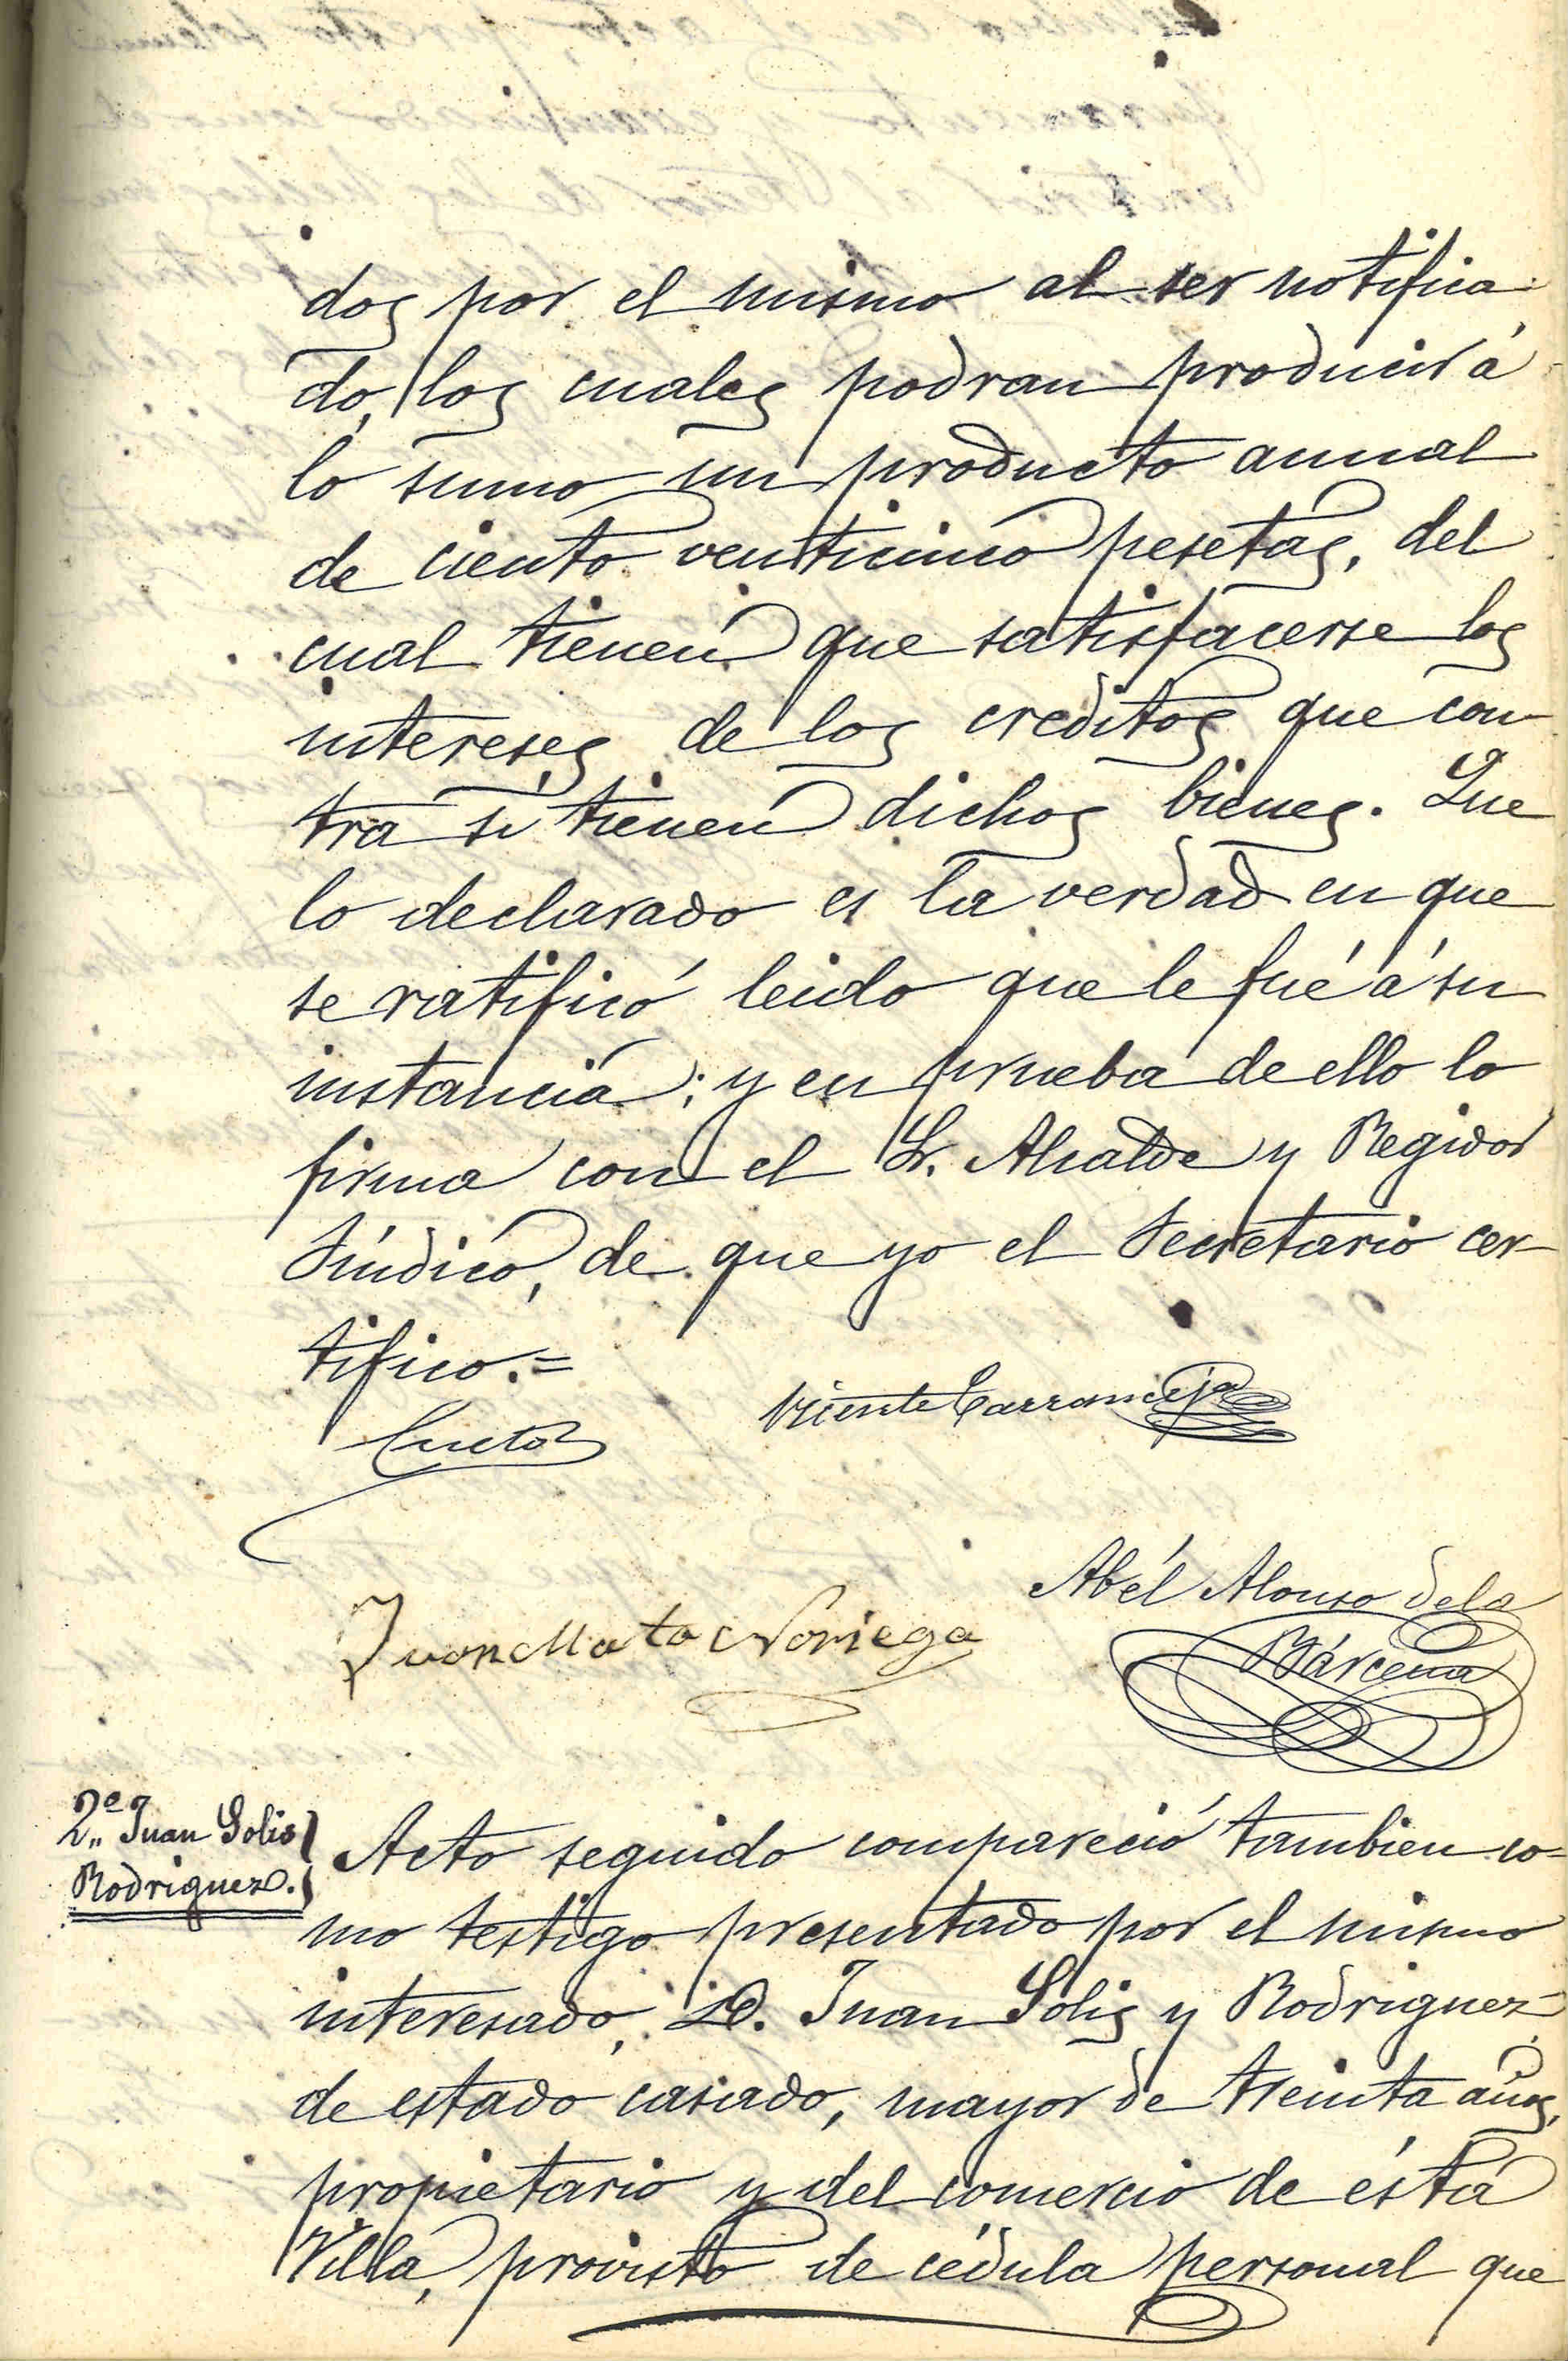 dos por el mismo al ser notifica-
do, los cuales podran producir á
lo sumo un producto anual
de ciento venticinco pesetas, del
cual tienen que satisfacerse los
intereses de los creditos que con-
tra si tienen dichos bienes. Que
lo declarado es la verdad en que
se ratificó leido que le fué á su
instancia; y en prueba de ello lo
firma con el Sr. Alcalde y Regidor
Síndico, de que yo el Secretario cer-
tifico.=
Cueto
Vicente Carranceja
Abél Alonso de la
Bárcena
Juan Mata Noriega
2º Juan Solis
Rodriguez.
Acto seguido compareció tambien co-
mo testigo presentado por el mismo
interesado, D. Juan Solis y Rodriguez,
de estado casado, mayor de treinta años,
propietario y del comercio de ésta
Villa, provisto de cédula personal que